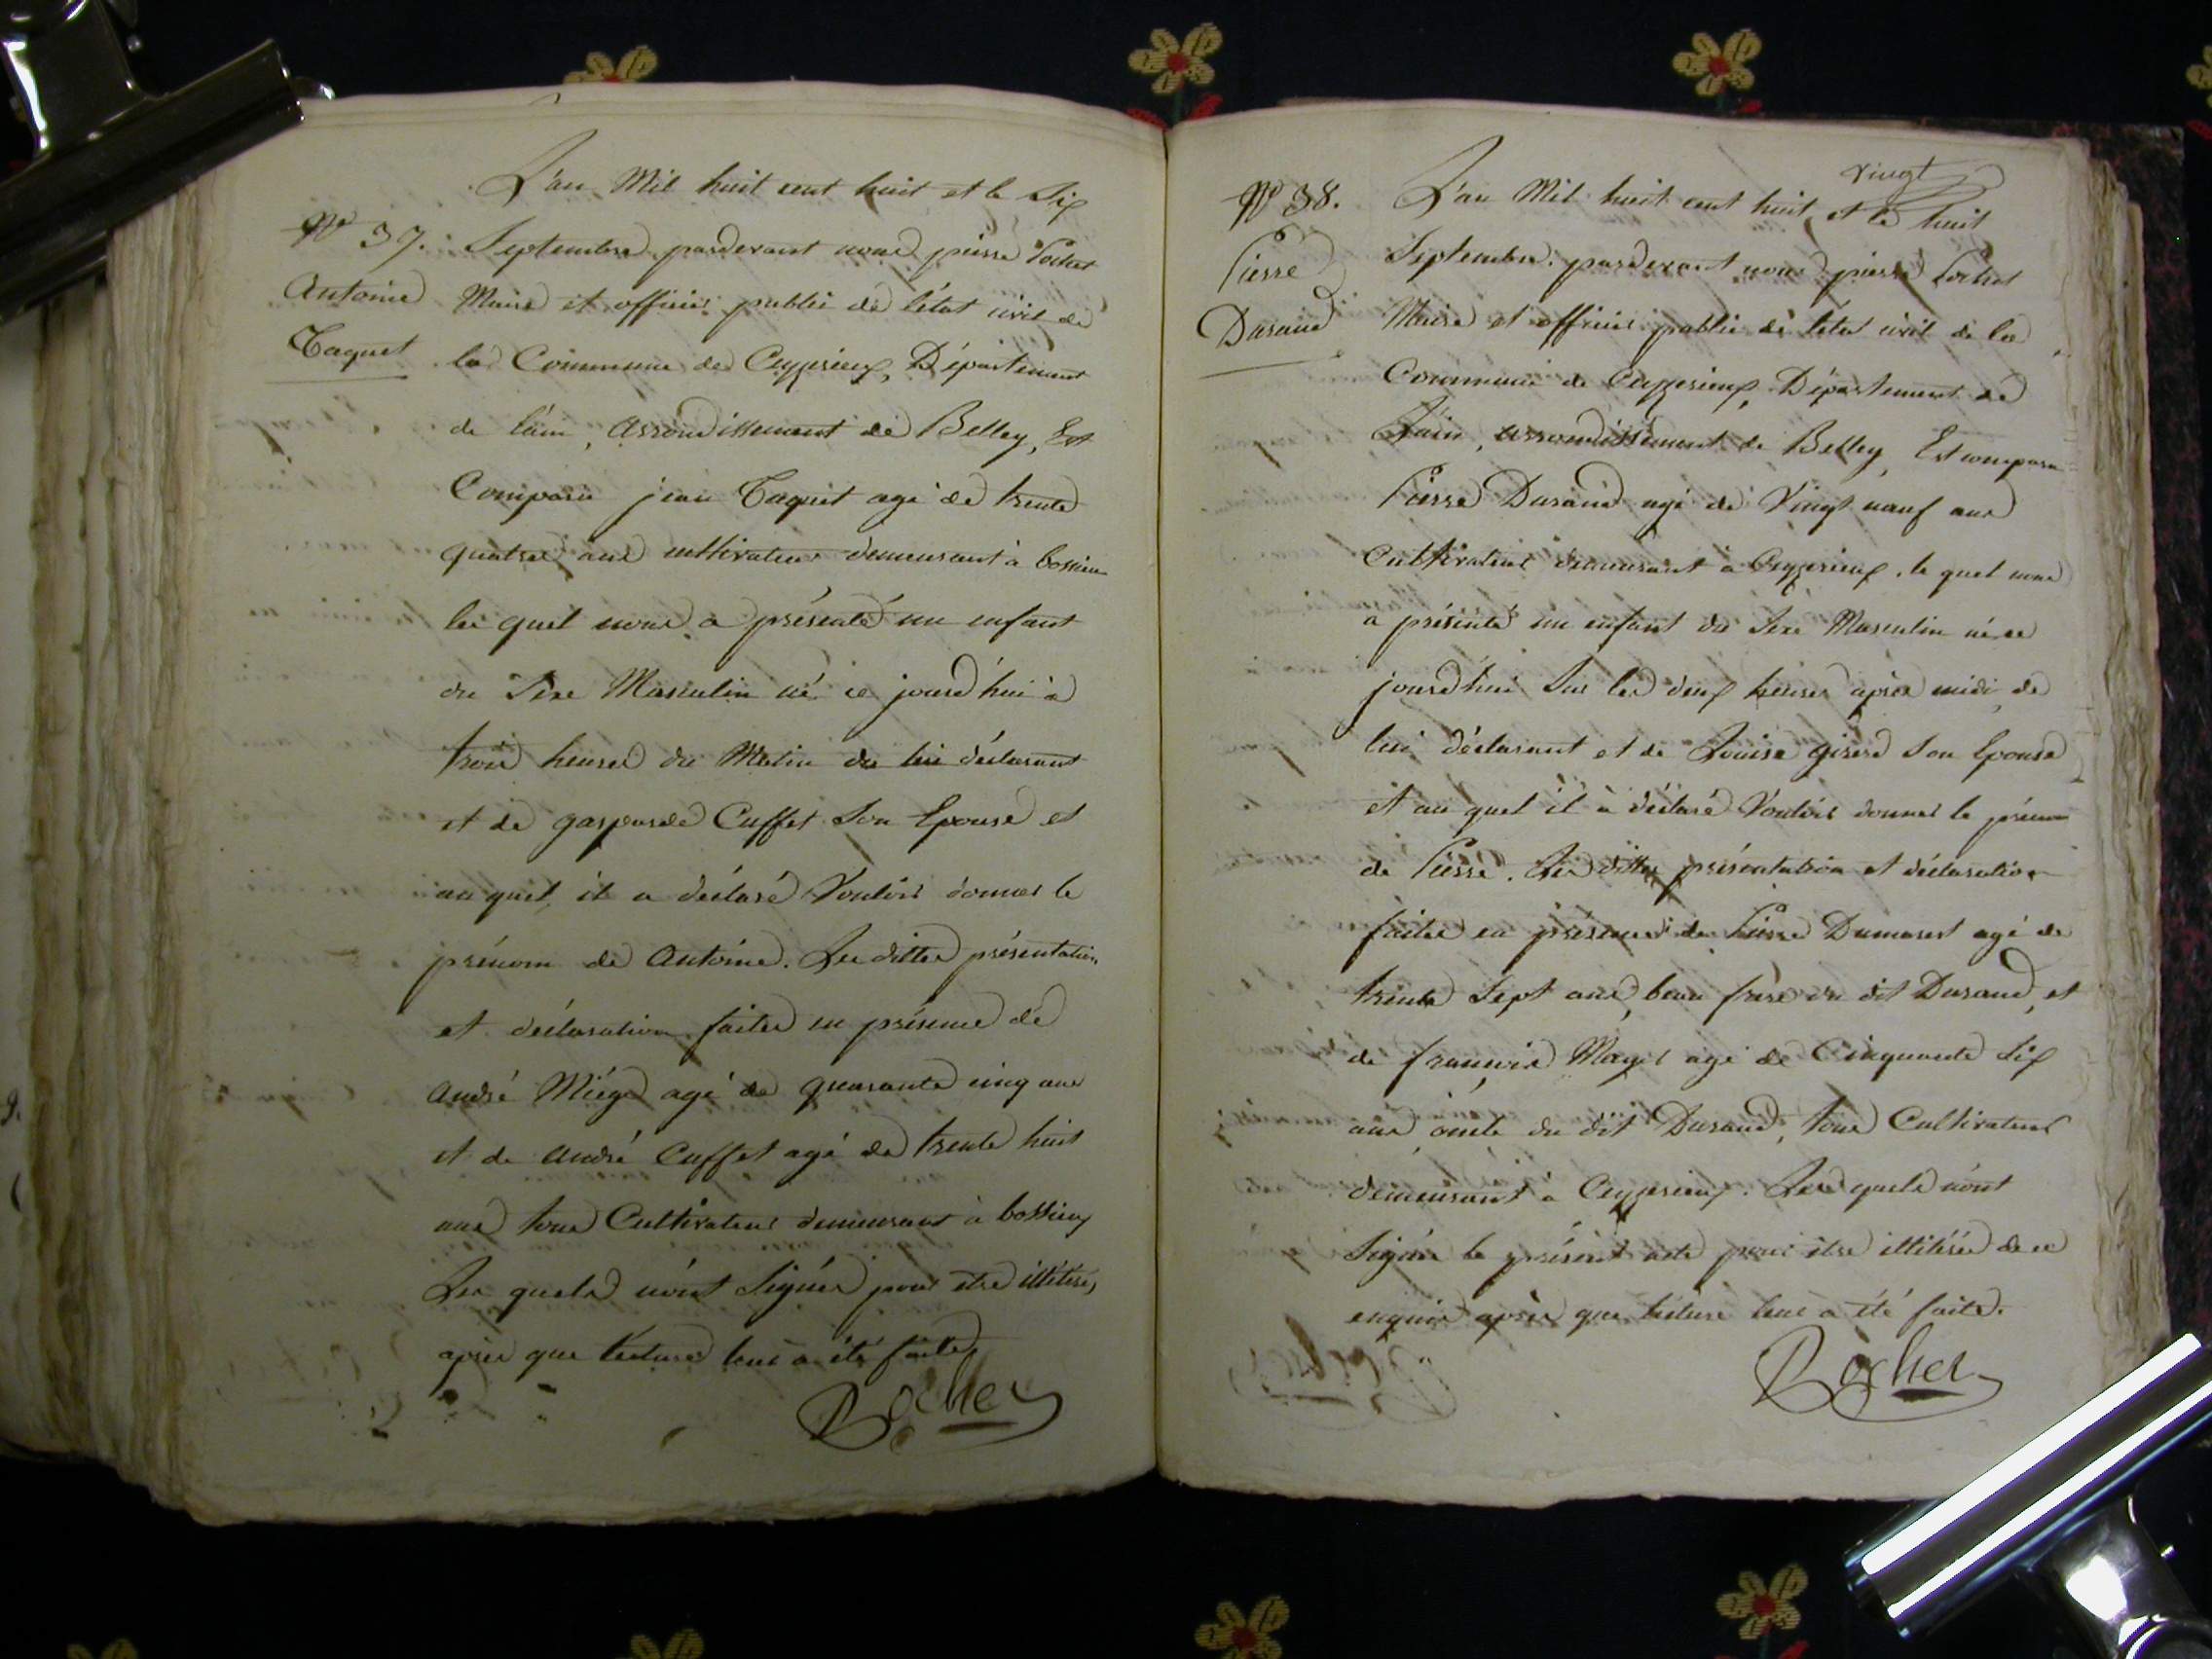 L'an Mil huit cent huit et le Six
N° 37. Septembre pardevant nous pierre Rochet
Antoine Maire et officier public de l'état civil de
Taquet la Commune de Ceyzerieux, Département
de l'ain, arrondissement de Belley, Est
Comparu jean Taquet agé de trente
quatre ans cultivateur demeurant à bossieu
le quel nous a présenté un enfant
du Sexe Masculin né ce jourd'hui à
trois heures du Matin de lui déclarant
et de gasparde Cuffet Son Epouse et
au quel il a déclaré Vouloir donner le
prénom de Antoine. Les dittes présentation
et déclaration faites en présence de
André Miége agé de quarante cinq ans
et de André Cuffet agé de trente huit
ans tous Cultivateurs demeurant à bossieux
Les quels n'ont Signés pour etre illitérés,
après que lecture leur a été faite,
Rochet
vingt
N° 38. L'an Mil huit cent huit, et le huit
Pierre Septembre pardevant nous pierre Rochet
Durand Maire et officier public de l'état civil de la
Commune de Ceyzerieux, Département de
L'ain, arrondissement de Belley, Est comparu
Pierre Durand agé de Vingt neuf ans
Cultivateur demeurant à Ceyzerieux. le quel nous
à présenté un enfant du Sexe Masculin né ce
jourd'hui Sur les deux heures après midi, de
lui déclarant et de Louise girerd Son Epouse
et au quel il à déclaré Vouloir donner le prénom
de Pierre. Les dittes présentation et déclaration
faites en présence de Pierre Dumarest agé de
trente Sept ans, beau frère du dit Durand, et
de françois agé de Cinquante Six
ans oncle du dit Durand, tous Cultivateurs
demeurant à Ceyzerieux. Les quels n'ont
Signés le présent acte pour être illitérés de ce
enquis après que lecture leur a été faite.
Rochet